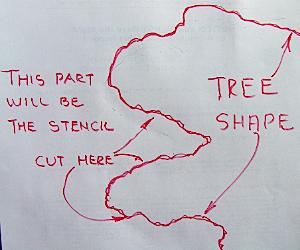 THIS PART
WILL BE
THE STENCIL
CUT HERE
TREE
SHAPE